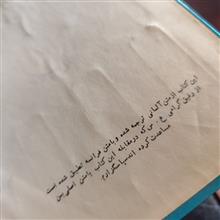 این کتاب ازمتن آلمانی ترجمه شده و بامتن فرانسه تطبیق شده است
از رفیق گرامی ع . س که درمقابله این کتاب بامتن اصلی بمن
مساعدت کرده اند سپاسگزارم